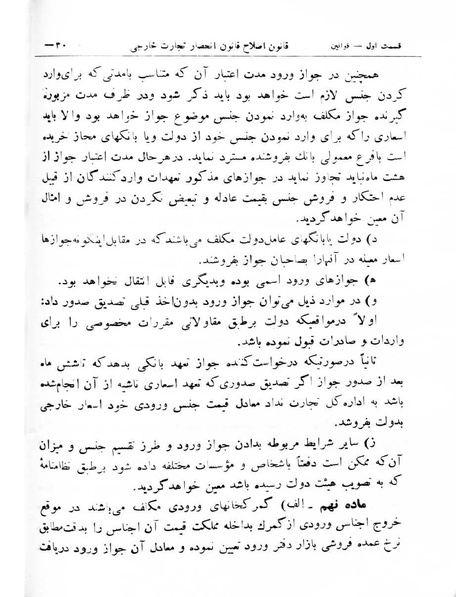 قسمت اول — قوانین قانون اصلاح قانون انحصار تجارت خارجی ۳۰—
همچنین در جواز ورود مدت اعتبار آن که متناسب بامدتی که برای وارد
کردن جنس لازم است خواهد بود باید ذکر شود ودر ظرف مدت مزبوره
گیرنده جواز مکلف به‌وارد نمودن جنس موضوع جواز خواهد بود والا باید
اسعاری راکه برای وارد نمودن جنس خود از دولت ویا بانکهای مجاز خریده
است بافرع معمولی بانک بفروشنده مسترد نماید. درهرحال مدت اعتبار جواز از
هشت ماه نباید تجاوز نماید در جوازهای مذکور تعهدات واردکنندگان از قبیل
عدم احتکار و فروش جنس بقیمت عادله و تبعیض نکردن در فروش و امثال
آن معین خواهدگردید.
د) دولت یابانکهای عامل‌دولت مکلف می‌باشند که در مقابل اینگونه‌جوازها
اسعار معینه در آنهارا بصاحبان جواز بفروشند.
ه) جوازهای ورود اسمی بوده وبدیگری قابل انتقال نخواهد بود.
و) در موارد ذیل می‌توان جواز ورود بدون‌اخذ قبلی تصدیق صدور داد:
اولاً درمواقعیکه دولت برطبق مقاولاتی مقررات مخصوصی را برای
واردات و صادرات قبول نموده باشد.
ثانیاً درصورتیکه درخواست‌کننده جواز تعهد بانکی بدهدکه تاشش ماه
بعد از صدور جواز اگر تصدیق صدوری‌که تعهد اسعاری ناشیه از آن انجام‌شده
باشد به اداره‌کل تجارت نداد معادل قیمت جنس ورودی خود اسعار خارجی
بدولت بفروشد.
ز) سایر شرایط مربوطه بدادن جواز ورود و طرز تقسیم جنس و میزان
آن‌که ممکن است دفعتاً باشخاص و مؤسسات مختلفه داده شود برطبق نظامنامهٔ
که به تصویب هیئت دولت رسیده باشد معین خواهدگردید.
ماده نهم ـ الف) گمرکخانهای ورودی مکلف می‌باشند در موقع
خروج اجناس ورودی ازگمرک بداخله مملکت قیمت آن اجناس را بدقت‌مطابق
نرخ عمده فروشی بازار دفتر ورود تعیین نموده و معادل آن جواز ورود دریافت